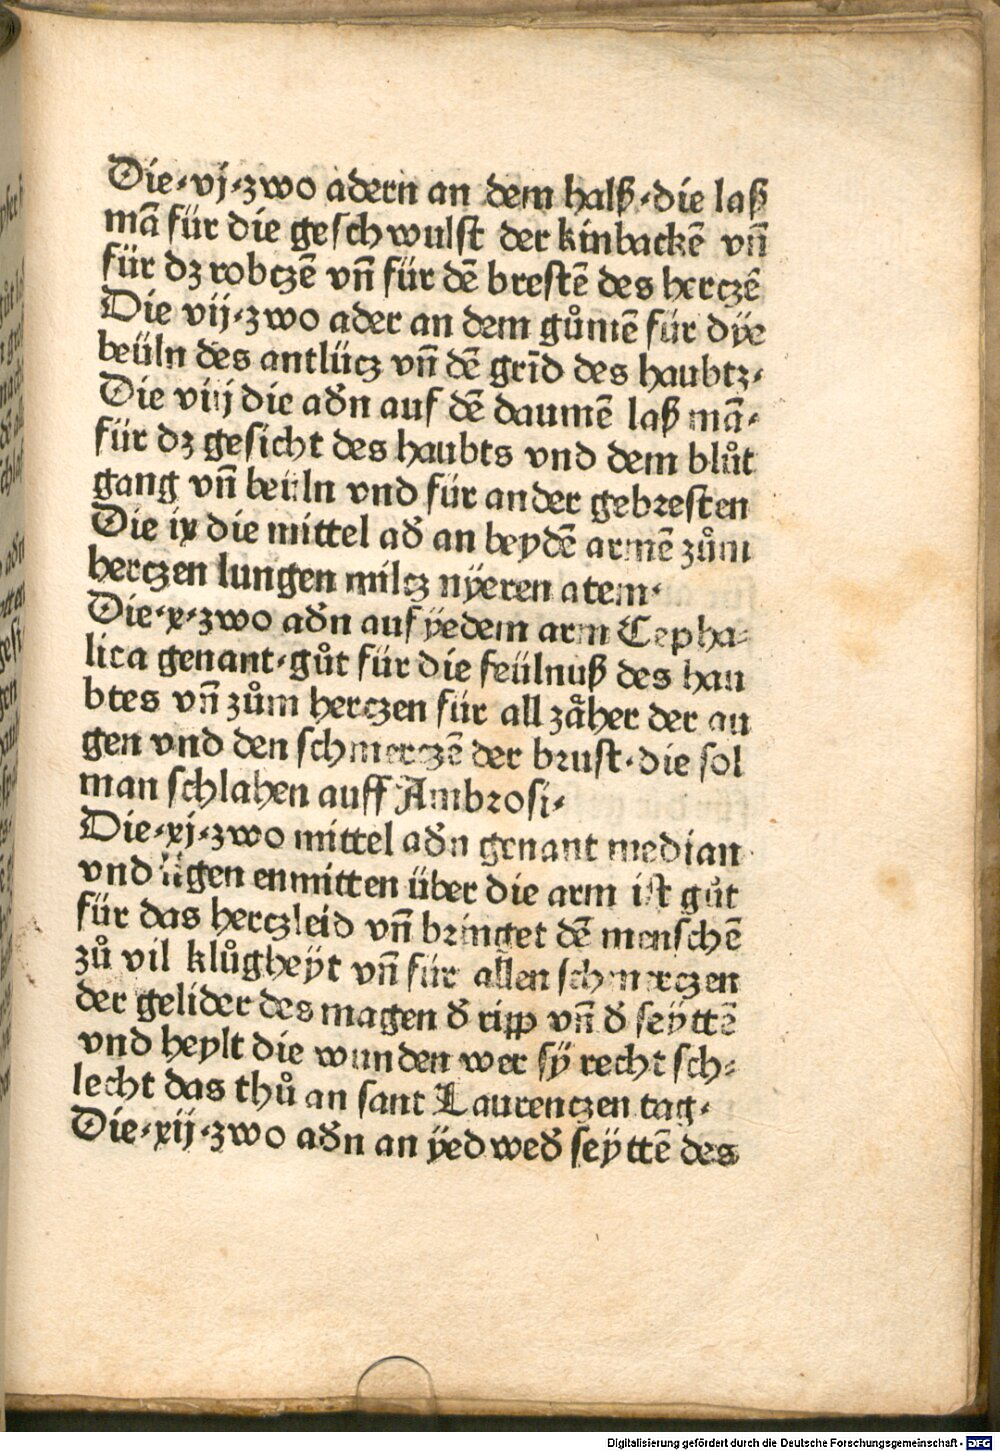 Die·vj·zwo adern an dem halß·die laß
mā für die geſchwulſt der kinbackē vn̄
für dz robczē vn̄ für dē breſtē des herczē
Die vij·zwo ader an dem gůmē für dÿe
beüln des antlücz vn̄ dē grīd des haubtz·
Die viij die adn auf dē daumē laß mā·
für dz geſicht des haubts vnd dem blůt
gang vn̄ beüln vnd für ander gebꝛeſten
Die ix die mittel ad an beydē armē zům
herczen lungen milcz nÿeren atem·
Die·x·zwo adn auf ÿedem arm Cepha⸗
lica genant·gůt für die feülnuß des hau
btes vn̄ zům herczen für all zäher der au
gen vnd den ſchmerczē der bꝛuſt·die ſol
man ſchlahen auff Ambꝛoſi·
Die·xj·zwo mittel adn genant median
vnd ligen enmitten über die arm iſt gůt
für das herczleid vn̄ bꝛinget dē menſchē
zů vil klůgheÿt vn̄ für allen ſchmerczen
der gelider des magen d ripp vn̄ d ſeÿttē
vnd heylt die wunden wer ſÿ recht ſch⸗
lecht das thů an ſant Laurenczen tag·
Die·xij·zwo adn an ÿedwed ſeÿttē des
Digitalisierung gefördert durch die Deutsche Forschungsgemeinschaft - DFG